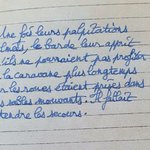 Une fois leurs palpitations
, le barde leur apprit
ils ne pourraient pas profiter
la caravane plus longtemps
les roues étaient prises dans
sables mouvants. Il fallait
tendre les secours.